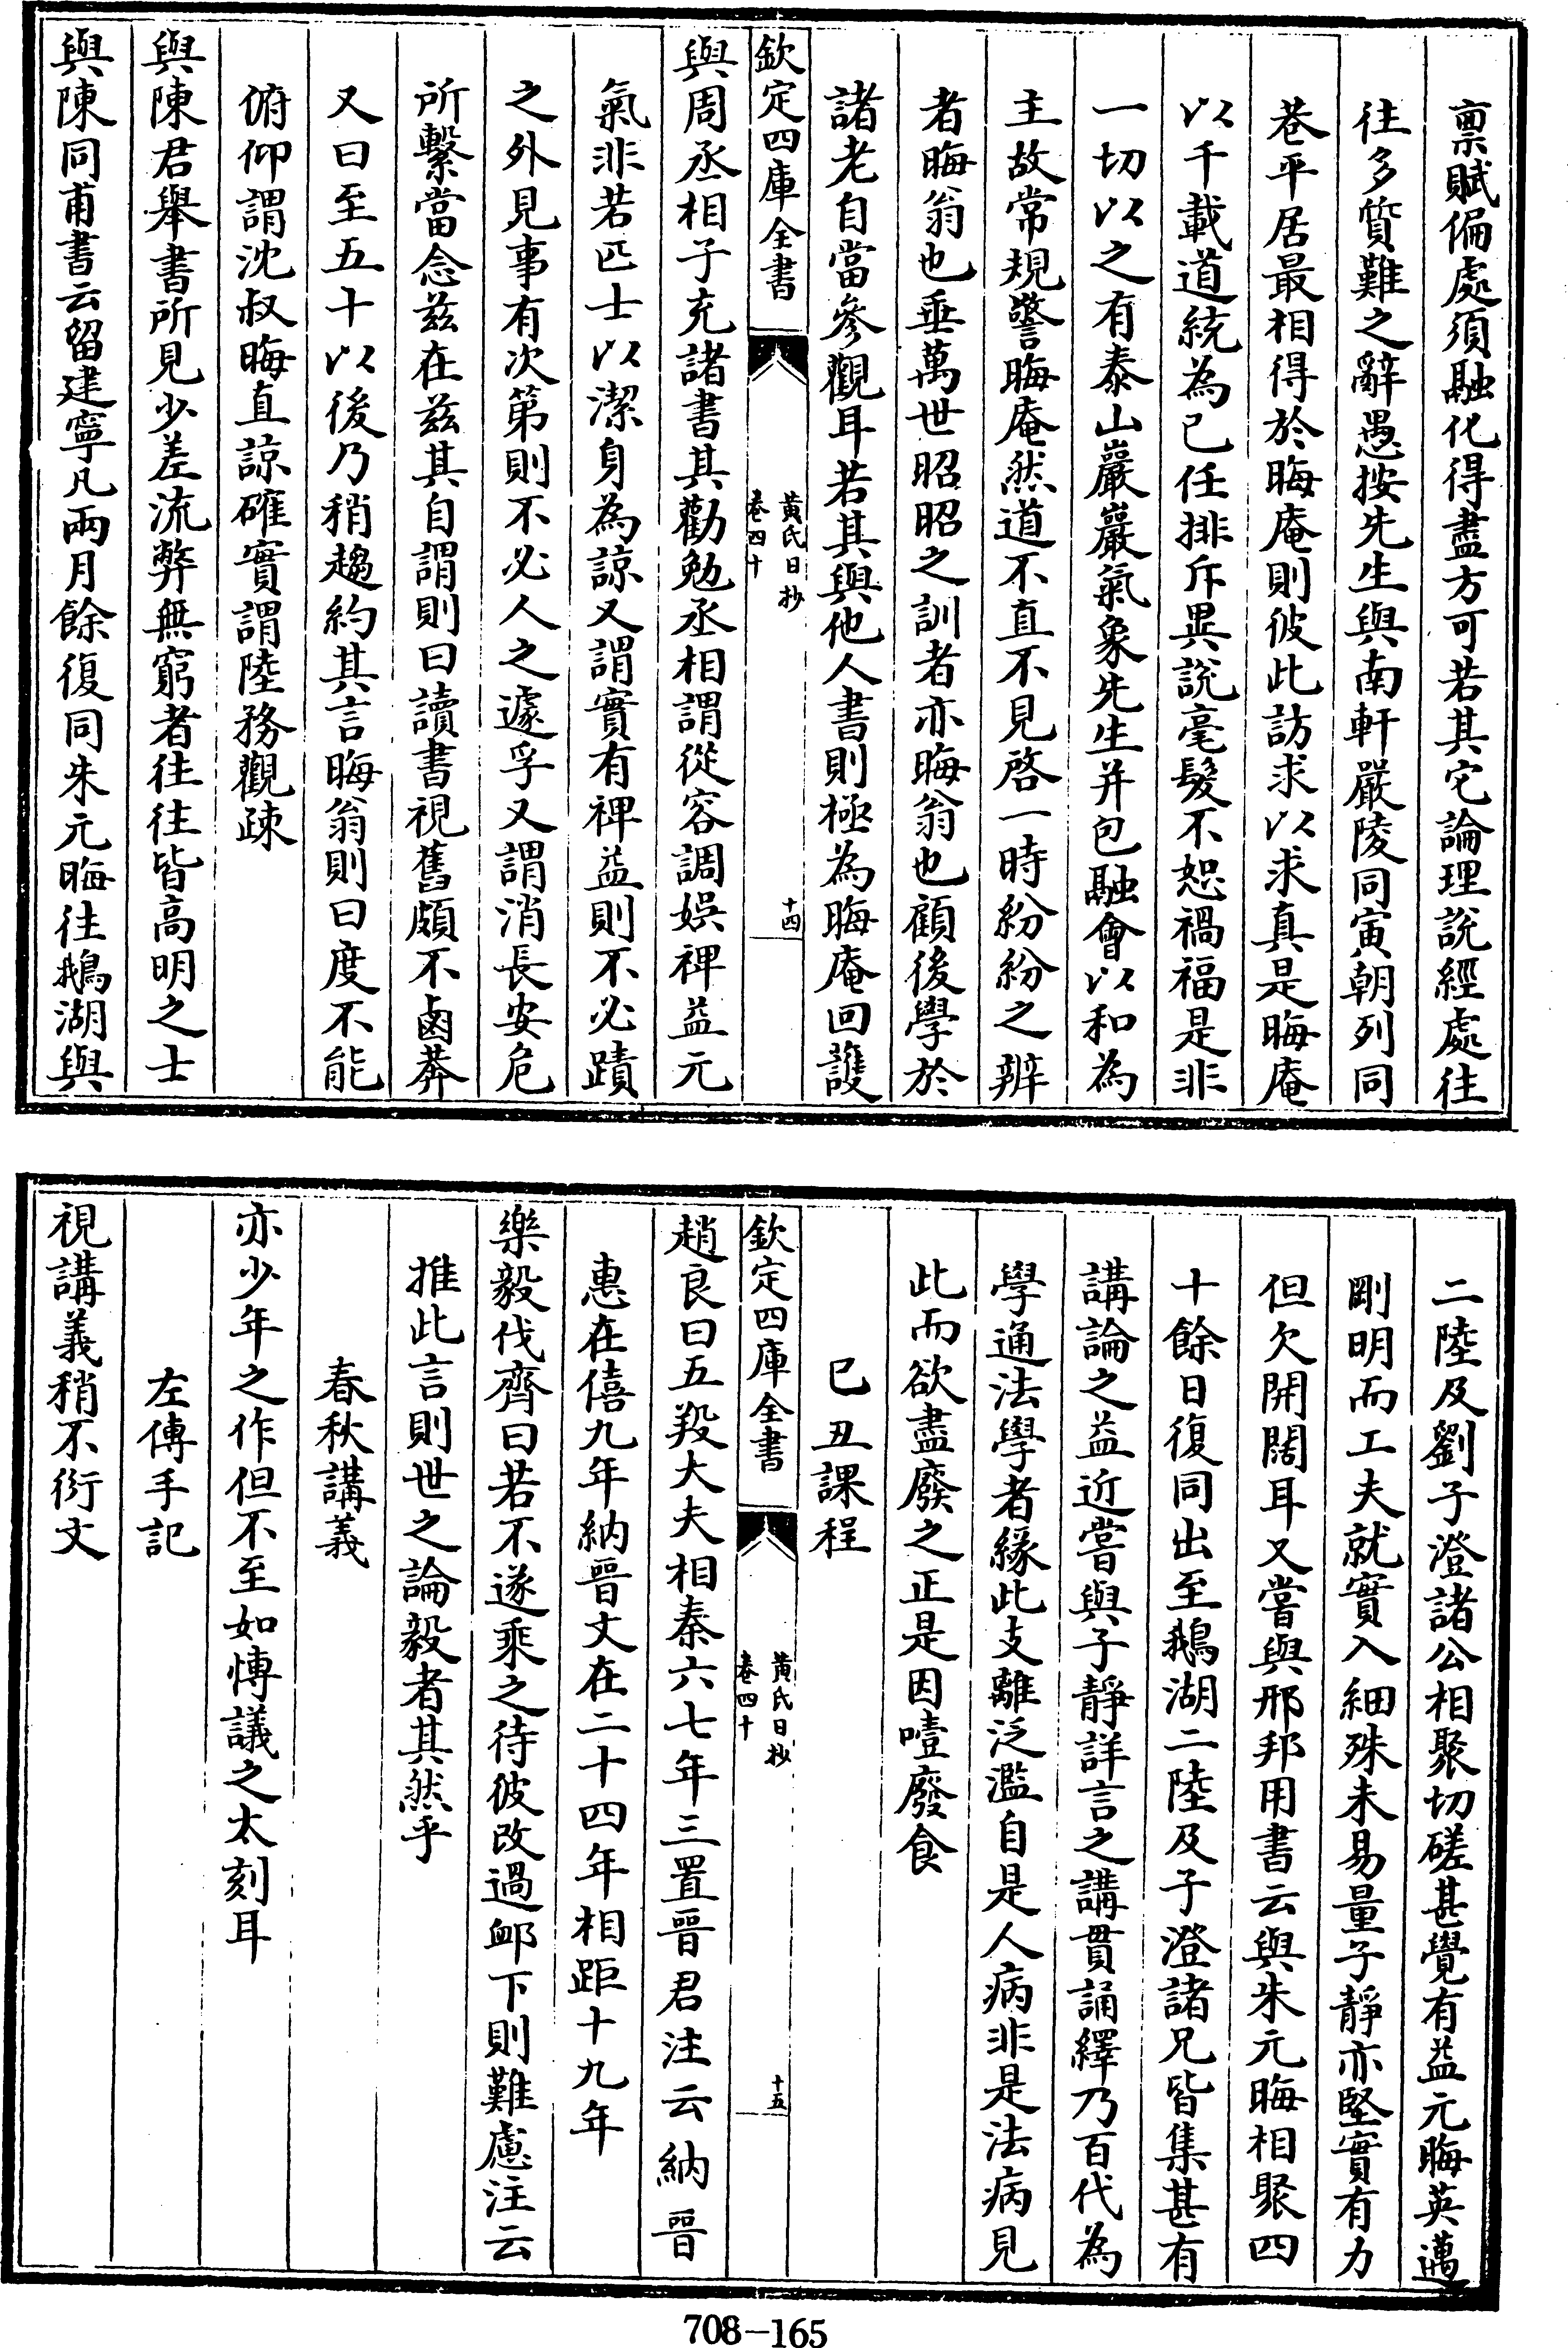 稟賦偏處須融化得盡方可若其它論理說經處往
往多質難之辭愚按先生與南軒嚴陵同寅朝列同
巷平居最相得於晦庵則彼此訪求以求真是晦庵
以千載道統為已任排斥異說毫髮不恕禍福是非
一切以之有泰山巖巖氣象先生并包融會以和為
主故常規警晦庵然道不直不見啓一時紛紛之辨
者晦翁也垂萬世昭昭之訓者亦晦翁也顧後學於
諸老自當參觀耳若其與他人書則極為晦庵回護
欽定四庫全書
黄氏日抄
卷四十
十四
與周丞相子充諸書其勸勉丞相謂從容調娛裨益元
氣非若匹士以潔身為諒又謂實有裨益則不必蹟
之外見事有次第則不必人之遽孚又謂消長安危
所繫當念兹在兹其自謂則曰讀書視舊頗不鹵莽
又曰至五十以後乃稍趨約其言晦翁則曰度不能
俯仰謂沈叔晦直諒確實謂陸務觀疎
與陳君舉書所見少差流弊無窮者往往皆高明之士
與陳同甫書云留建寧凡兩月餘復同朱元晦往鵝湖與
二陸及劉子澄諸公相聚切磋甚覺有益元晦英邁
剛明而工夫就實入細殊未易量子靜亦堅實有力
但欠開闊耳又嘗與邢邦用書云與朱元晦相聚四
十餘日復同出至鵝湖二陸及子澄諸兄皆集甚有
講論之益近嘗與子靜詳言之講貫誦繹乃百代為
學通法學者緣此支離泛濫自是人病非是法病見
此而欲盡廢之正是因噎廢食
己丑課程
欽定四庫全書
黄氏日抄
卷四十
十五
趙良曰五羖大夫相秦六七年三置晉君注云納晉
惠在僖九年納晉文在二十四年相距十九年
樂毅伐齊曰若不遂乘之待彼改過䘏下則難慮注云
推此言則世之論毅者其然乎
春秋講義
亦少年之作但不至如博議之太刻耳
左傳手記
視講義稍不衍文
708-165